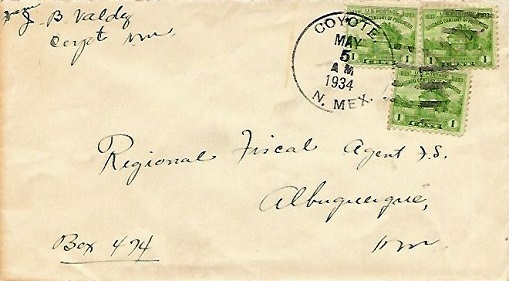 J B Valdy
Coyot nm
COYOTE
MAY
5
A M
1934
N. MEX.
U.S. POSTAGE
1 1
1 1
1 1
Regional Fiscal Agent F.S.
Albuquerque,
nm.
Box 474